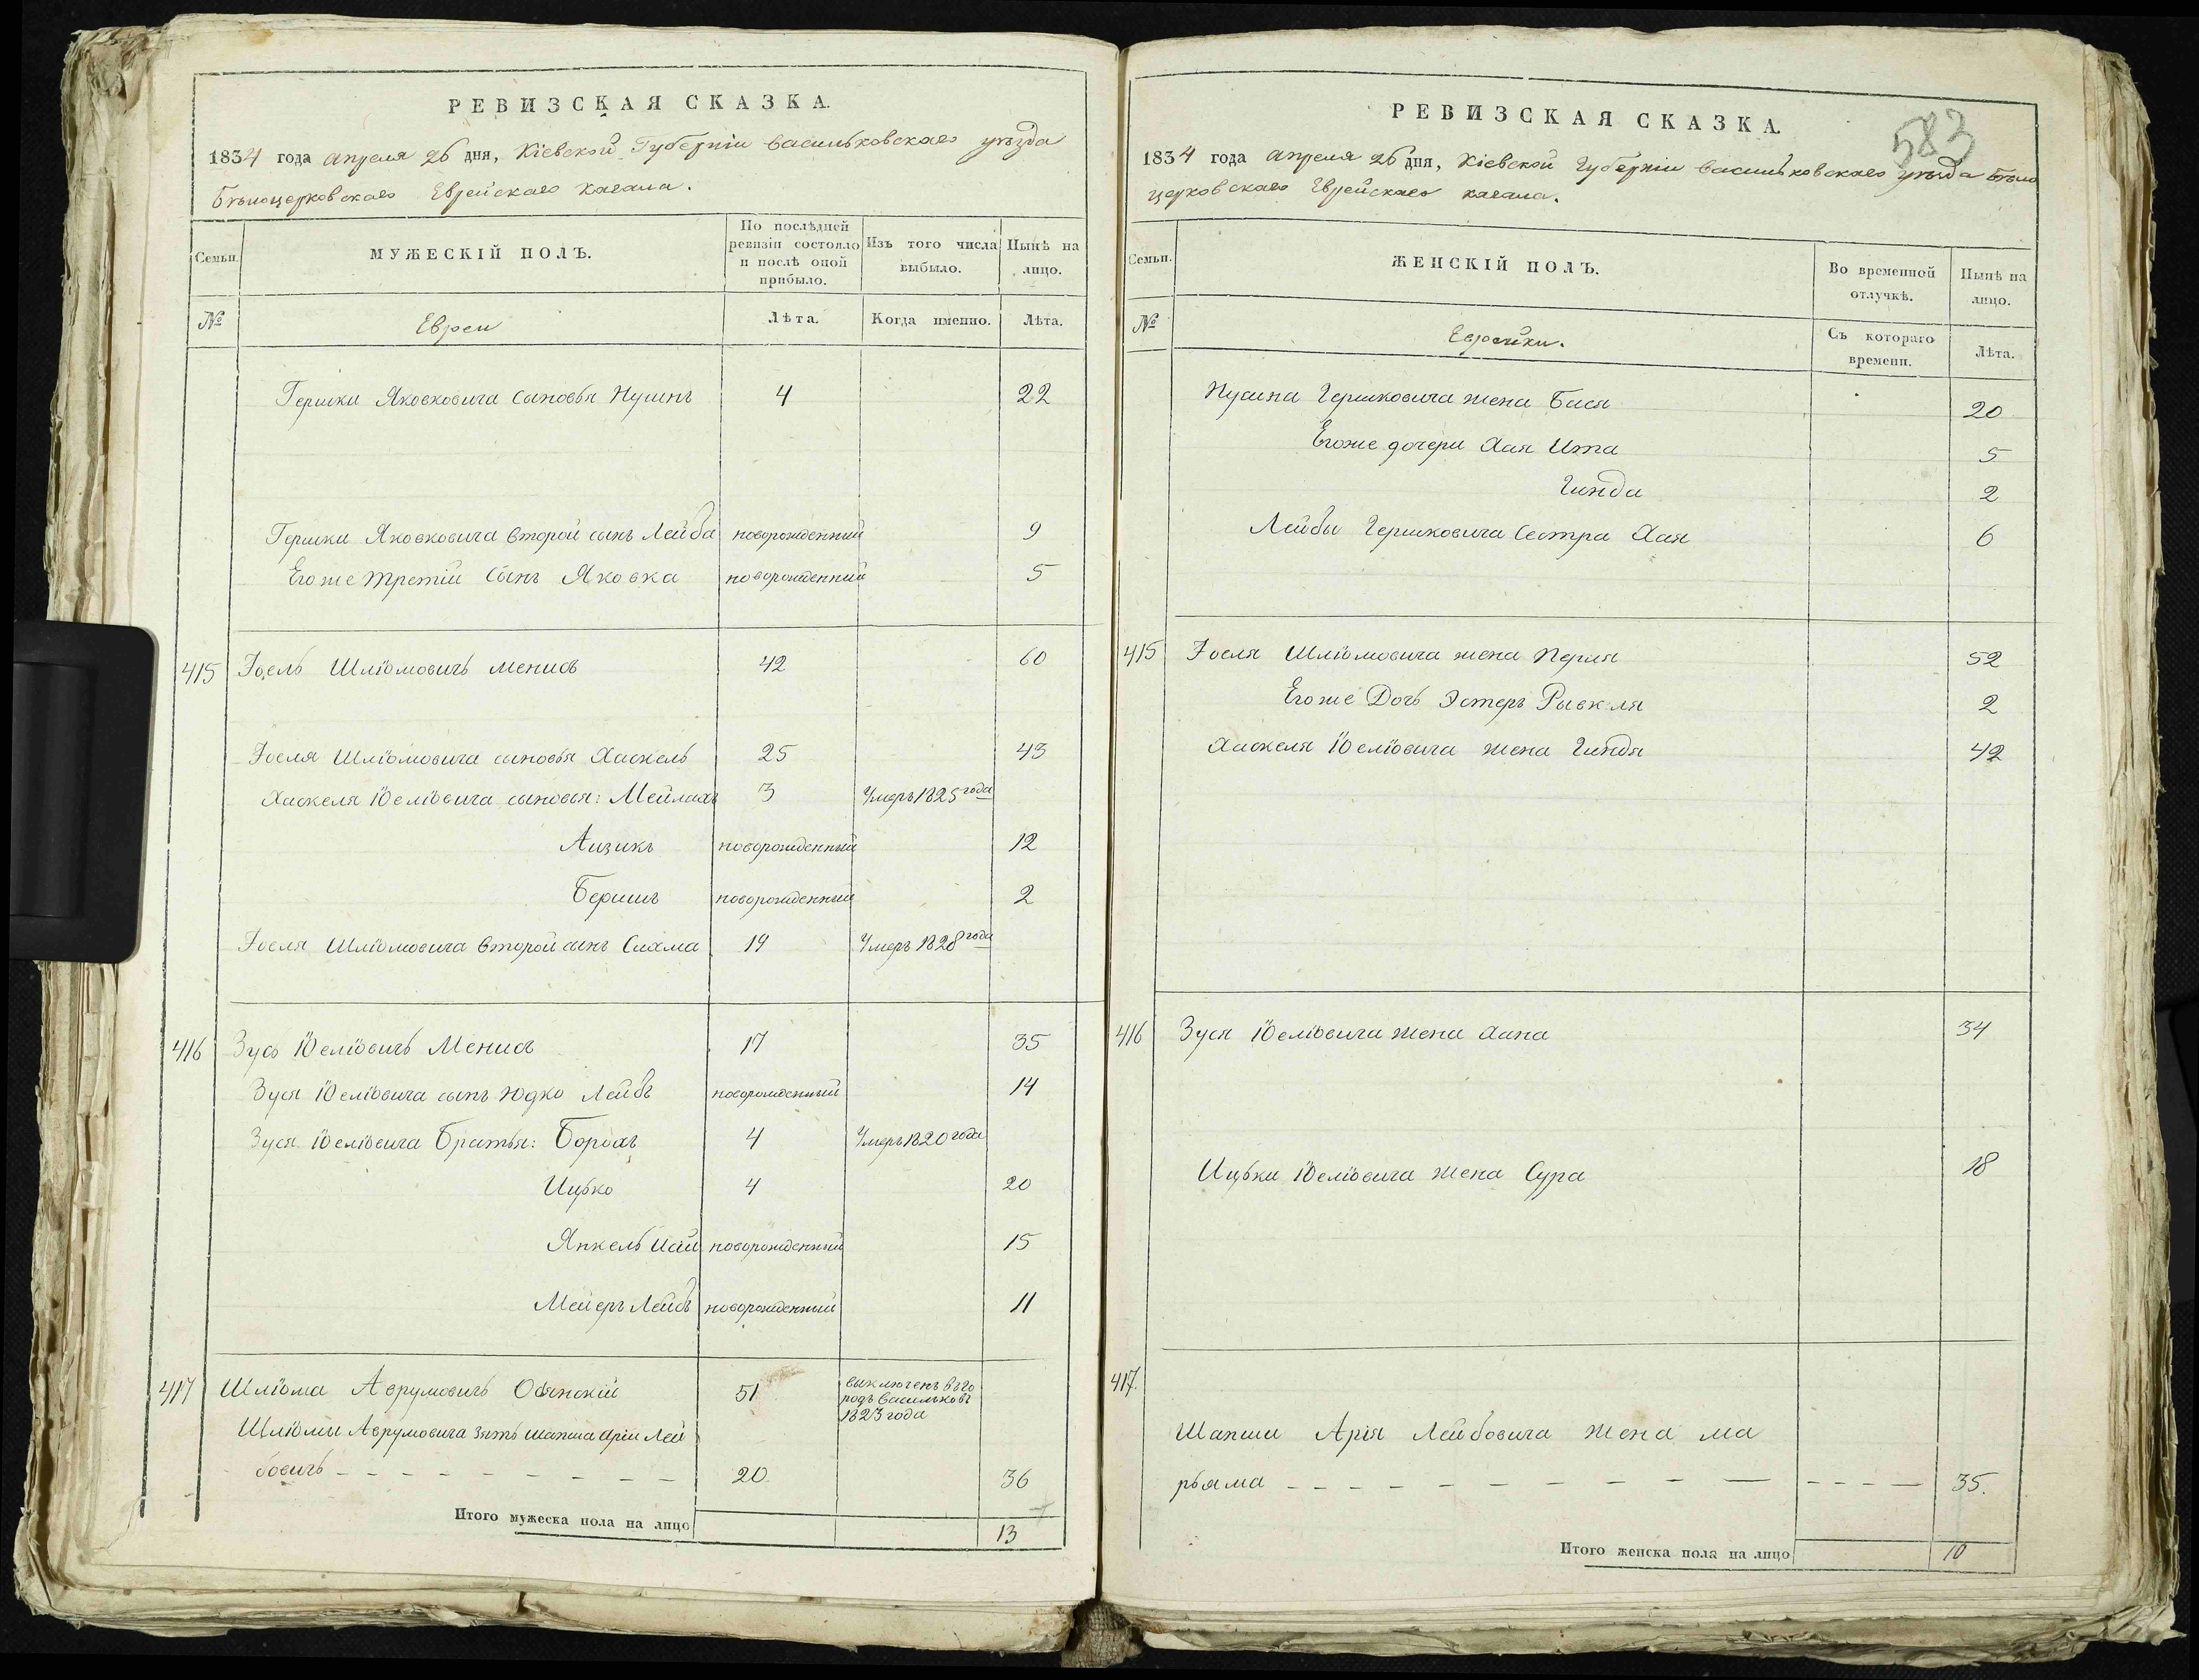 РЕВИЗСКАЯ СКАЗКА.
1834 года апреля 26 дня, Кіевской Губерніи Васильковскаго уѣзда
Бѣлоцерковскаго Еврейскаго кагала.
Семьи.
МУЖЕСКІЙ ПОЛЪ.
По послѣдней ревизіи состояло и послѣ оной прибыло.
Изъ того числа выбыло.
Нынѣ на лицо.
№
Евреи
Лѣта.
Когда именно.
Лѣта.
Гершки Яковковича сыновья Нусинъ 4 22
Гершки Яковковича второй сынъ Лейба новорожденный 9
Егоже третій сынъ Яковка новорожденный 5
415 Іоель Шліомовичъ Менисъ 42 60
Іоеля Шліомовича сыновья Хаскель 25 43
Хаскеля Іоеліовича сыновья: Мейлахъ 3 Умеръ 1825 года
Аизикъ новорожденный 12
Беришъ новорожденный 2
Іоеля Шліомовича второй сынъ Сихма 19 Умеръ 1828 года
416 Зусь Іоеліовичъ Менисъ 17 35
Зуся Іоеліовича сынъ Юдко Лейбъ новорожденный 14
Зуся Іоеліовича братья: Борохъ 4 Умеръ 1820 года
Ицько 4 20
Янкель новорожденный 15
Мейеръ Лейбъ новорожденный 11
417 Шліома Аврумовичъ 51 выключенъ въ го
родъ Васильковъ
1823 года
Шліомы Аврумовича зять Шапша Арія Лей
бовичъ 20 36
Итого мужеска пола на лицо 13
РЕВИЗСКАЯ СКАЗКА.
583
1834 года апреля 26 дня, Кіевской Губерніи Васильковскаго уѣзда Бѣло
церковскаго Еврейскаго кагала.
Семьи.
ЖЕНСКІЙ ПОЛЪ.
Во временной отлучкѣ.
Нынѣ на лицо.
№
Еврейки.
Съ котораго времени.
Лѣта.
Нусина Гершковича жена Бася 20
Егоже дочери Хая Ита 5
Гинда 2
Лейбы Гершковича сестра Хая 6
415 Іоеля Шліомовича жена Перля 52
Егоже Дочь Эстеръ Рывкля 2
Хаскеля Іоеліовича жена Гиндя 42
416 Зуся Іоеліовича жена Хана 34
Ицьки Іоеліовича жена Сура 18
417.
Шапши Арія Лейбовича жена ма
рьяма 35.
Итого женска пола на лицо 10